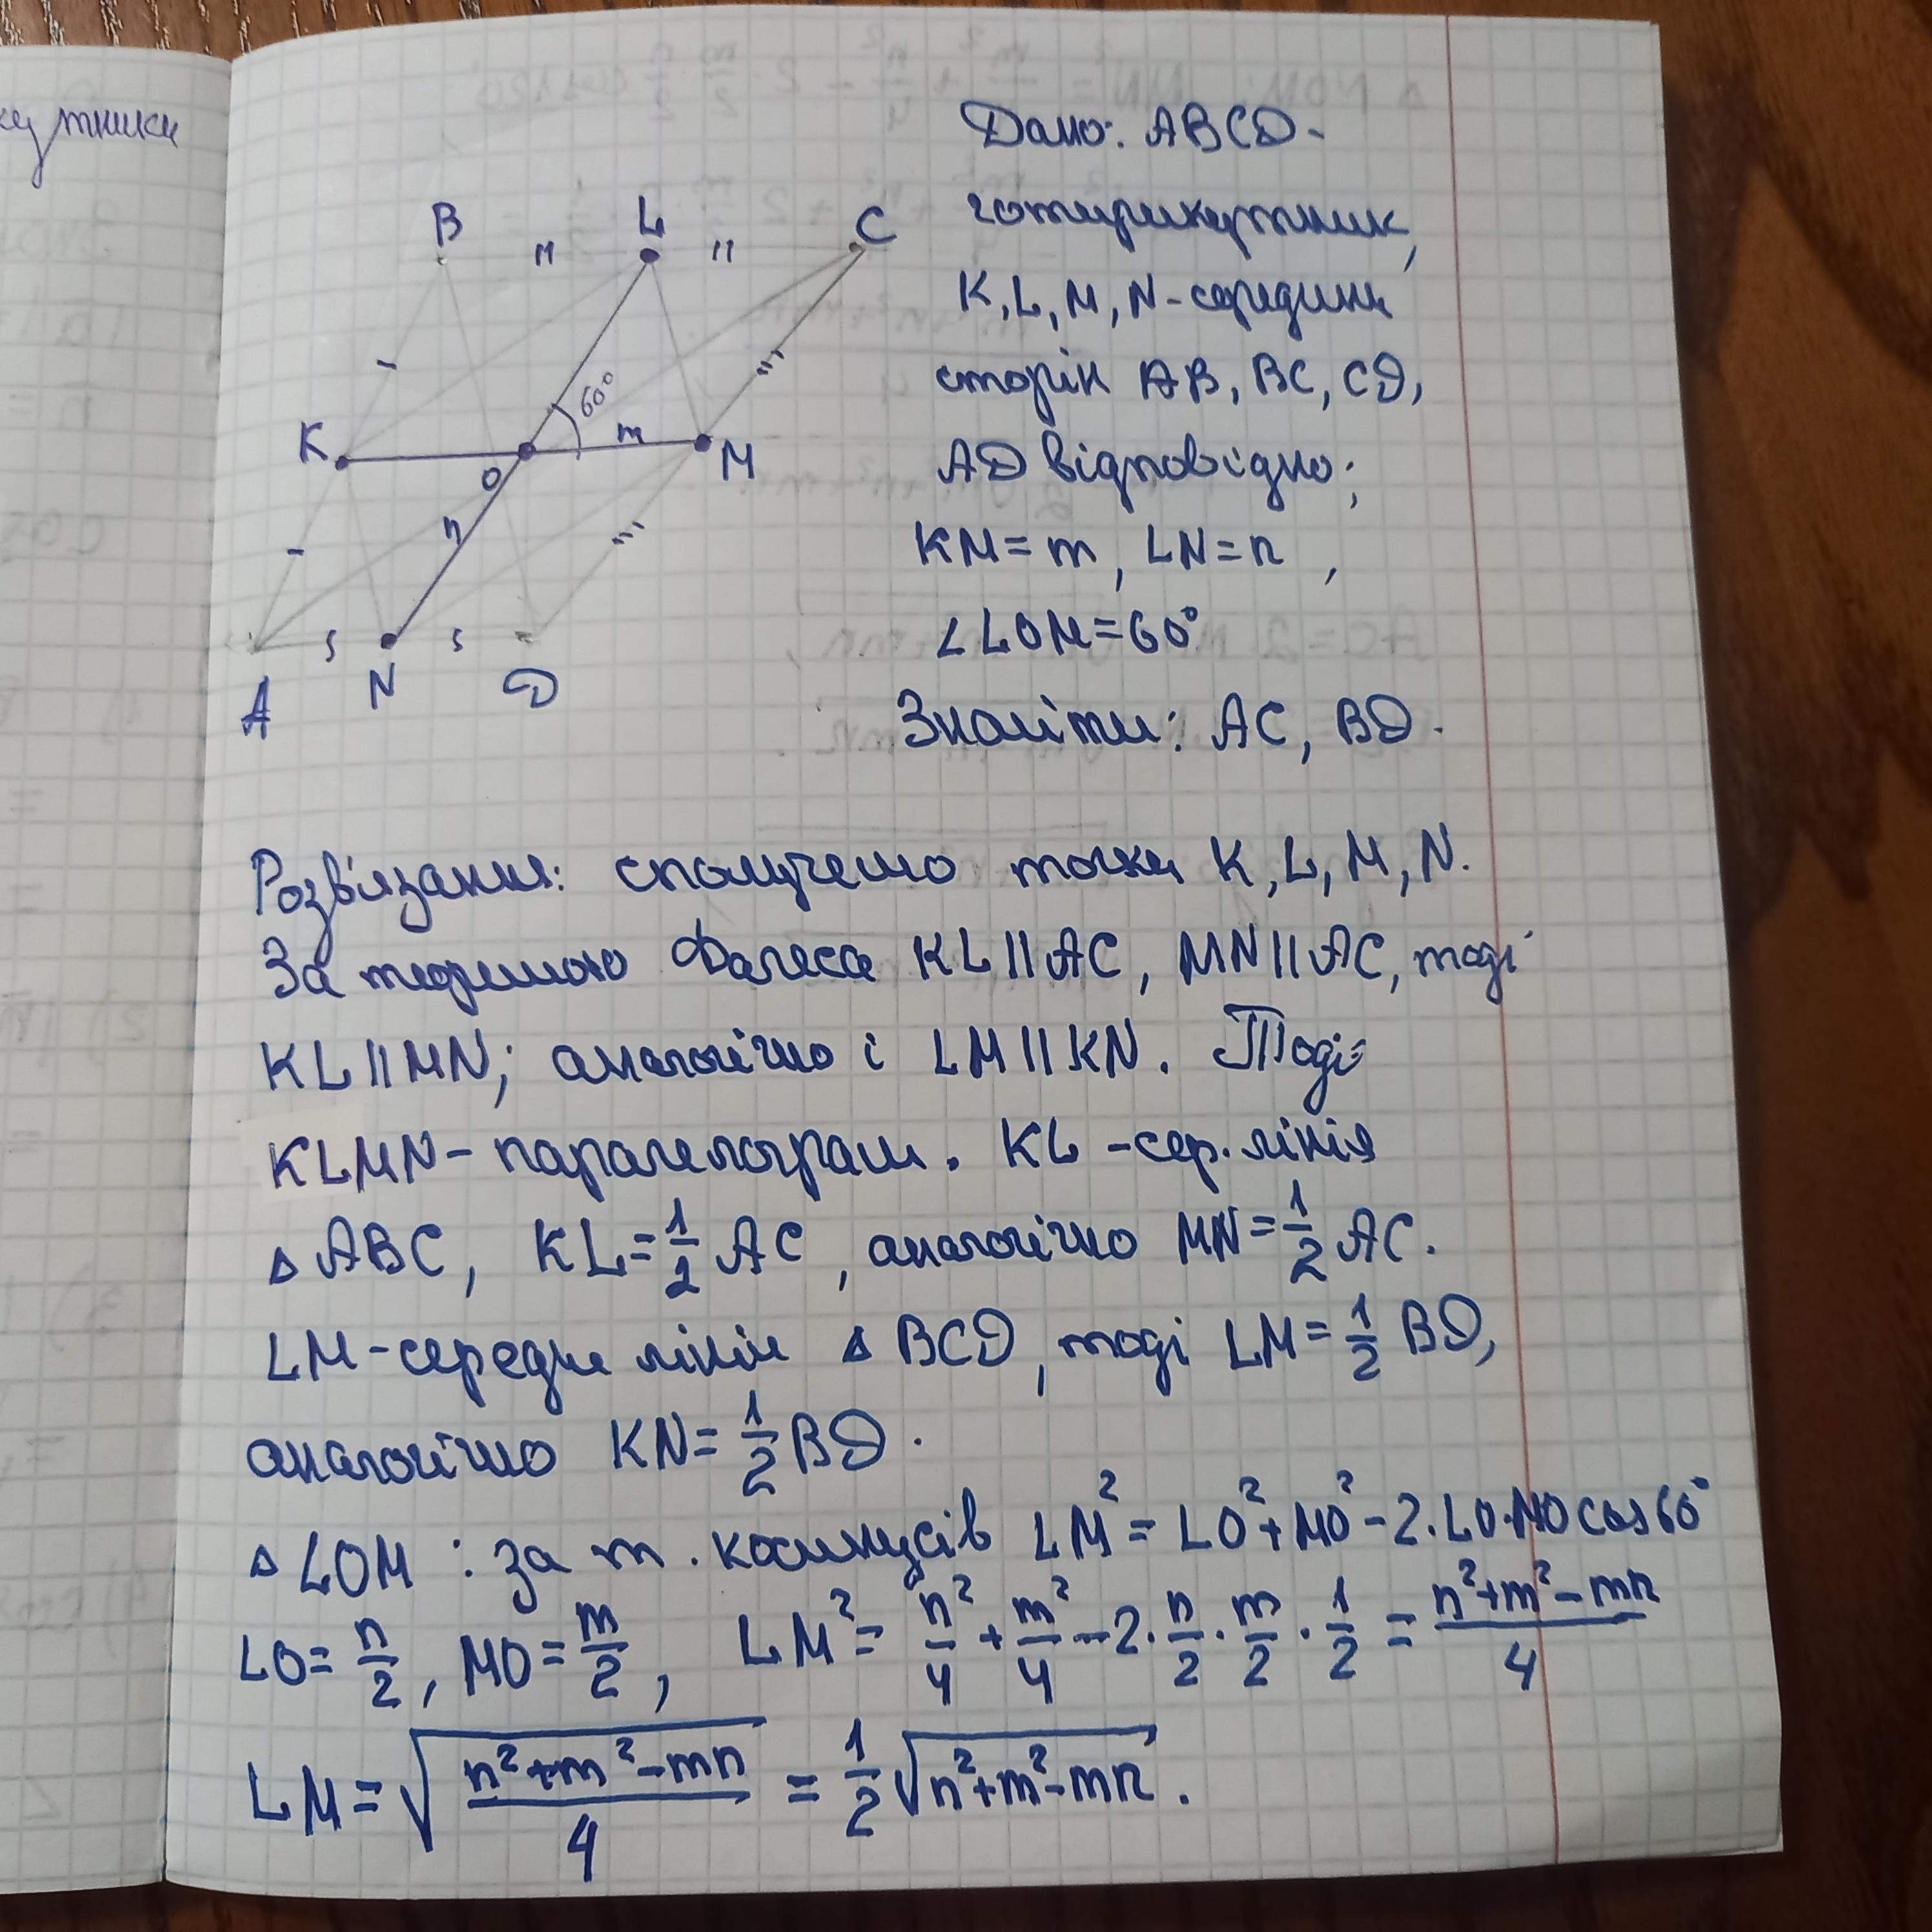 кутники
Дано: ABCD-
чотирикутник,
K, L, M, N - середини
сторін AB, BC, CD,
AD відповідно;
KM = m, LN = n,
∠LOM = 60°
Знайти: AC, BD.
B L C
60°
K O m M
n
A N D
Розв'язання: сполучемо точки K, L, M, N.
За теоремою Фалеса KL || AC, MN || AC, тоді
KL || MN; аналогічно і LM || KN. Тоді
KLMN - паралелограм. KL - сер. лінія
△ABC, KL = 1/2 AC, аналогічно MN = 1/2 AC.
LM - середня лінія △ BCD, тоді LM = 1/2 BD,
аналогічно KN = 1/2 BD.
△LOM : за т. косинусів LM² = LO² + MO² - 2·LO·MO cos 60°
LO = n/2, MO = m/2, LM² = n²/4 + m²/4 - 2 · n/2 · m/2 · 1/2 = (n² + m² - mn)/4
LM = √((n² + m² - mn)/4) = 1/2 √(n² + m² - mn).